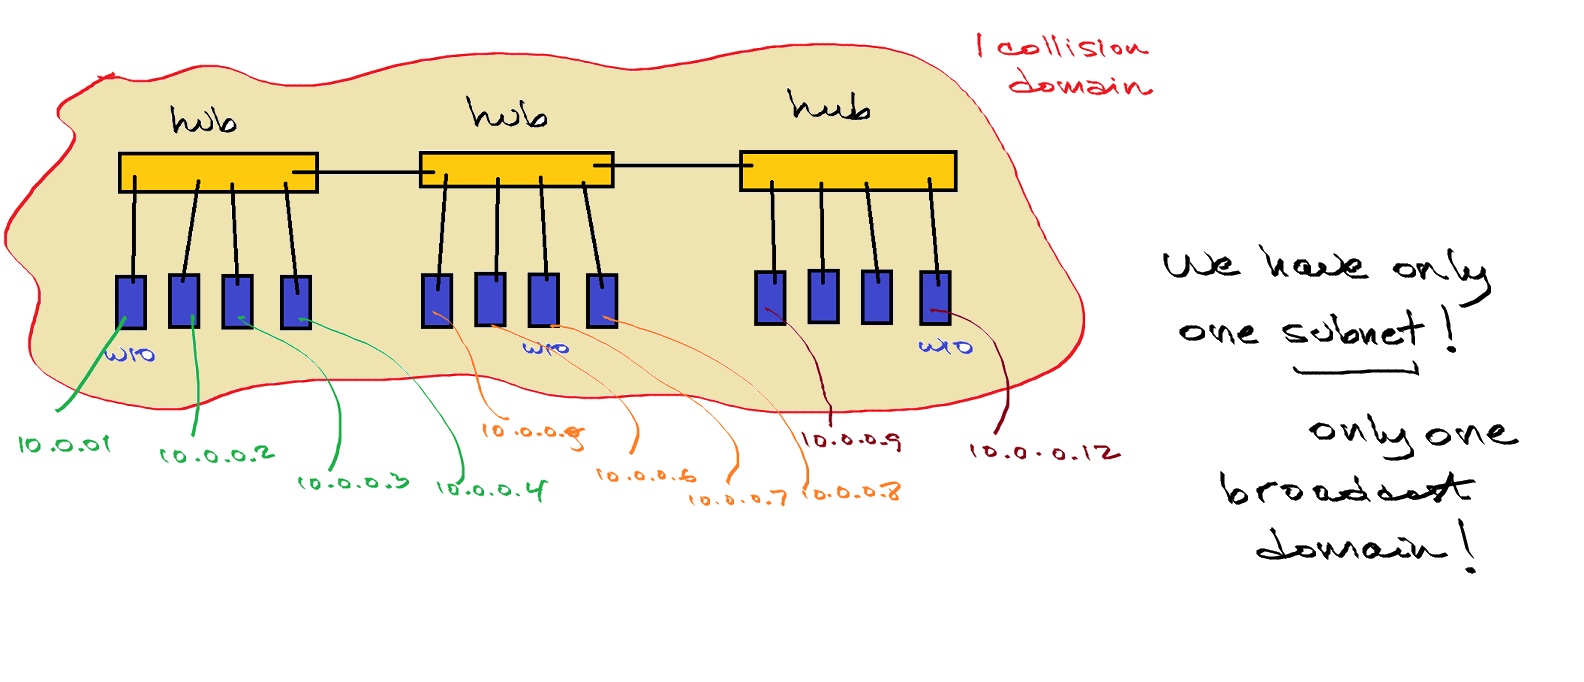 1 collision
domain
hub
hub
hub
W10
W10
W10
10.0.01
10.0.0.2
10.0.0.3
10.0.0.4
10.0.0.5
10.0.0.6
10.0.0.7
10.0.0.8
10.0.0.9
10.0.0.12
We have only
one subnet!
only one
broadcast
domain!